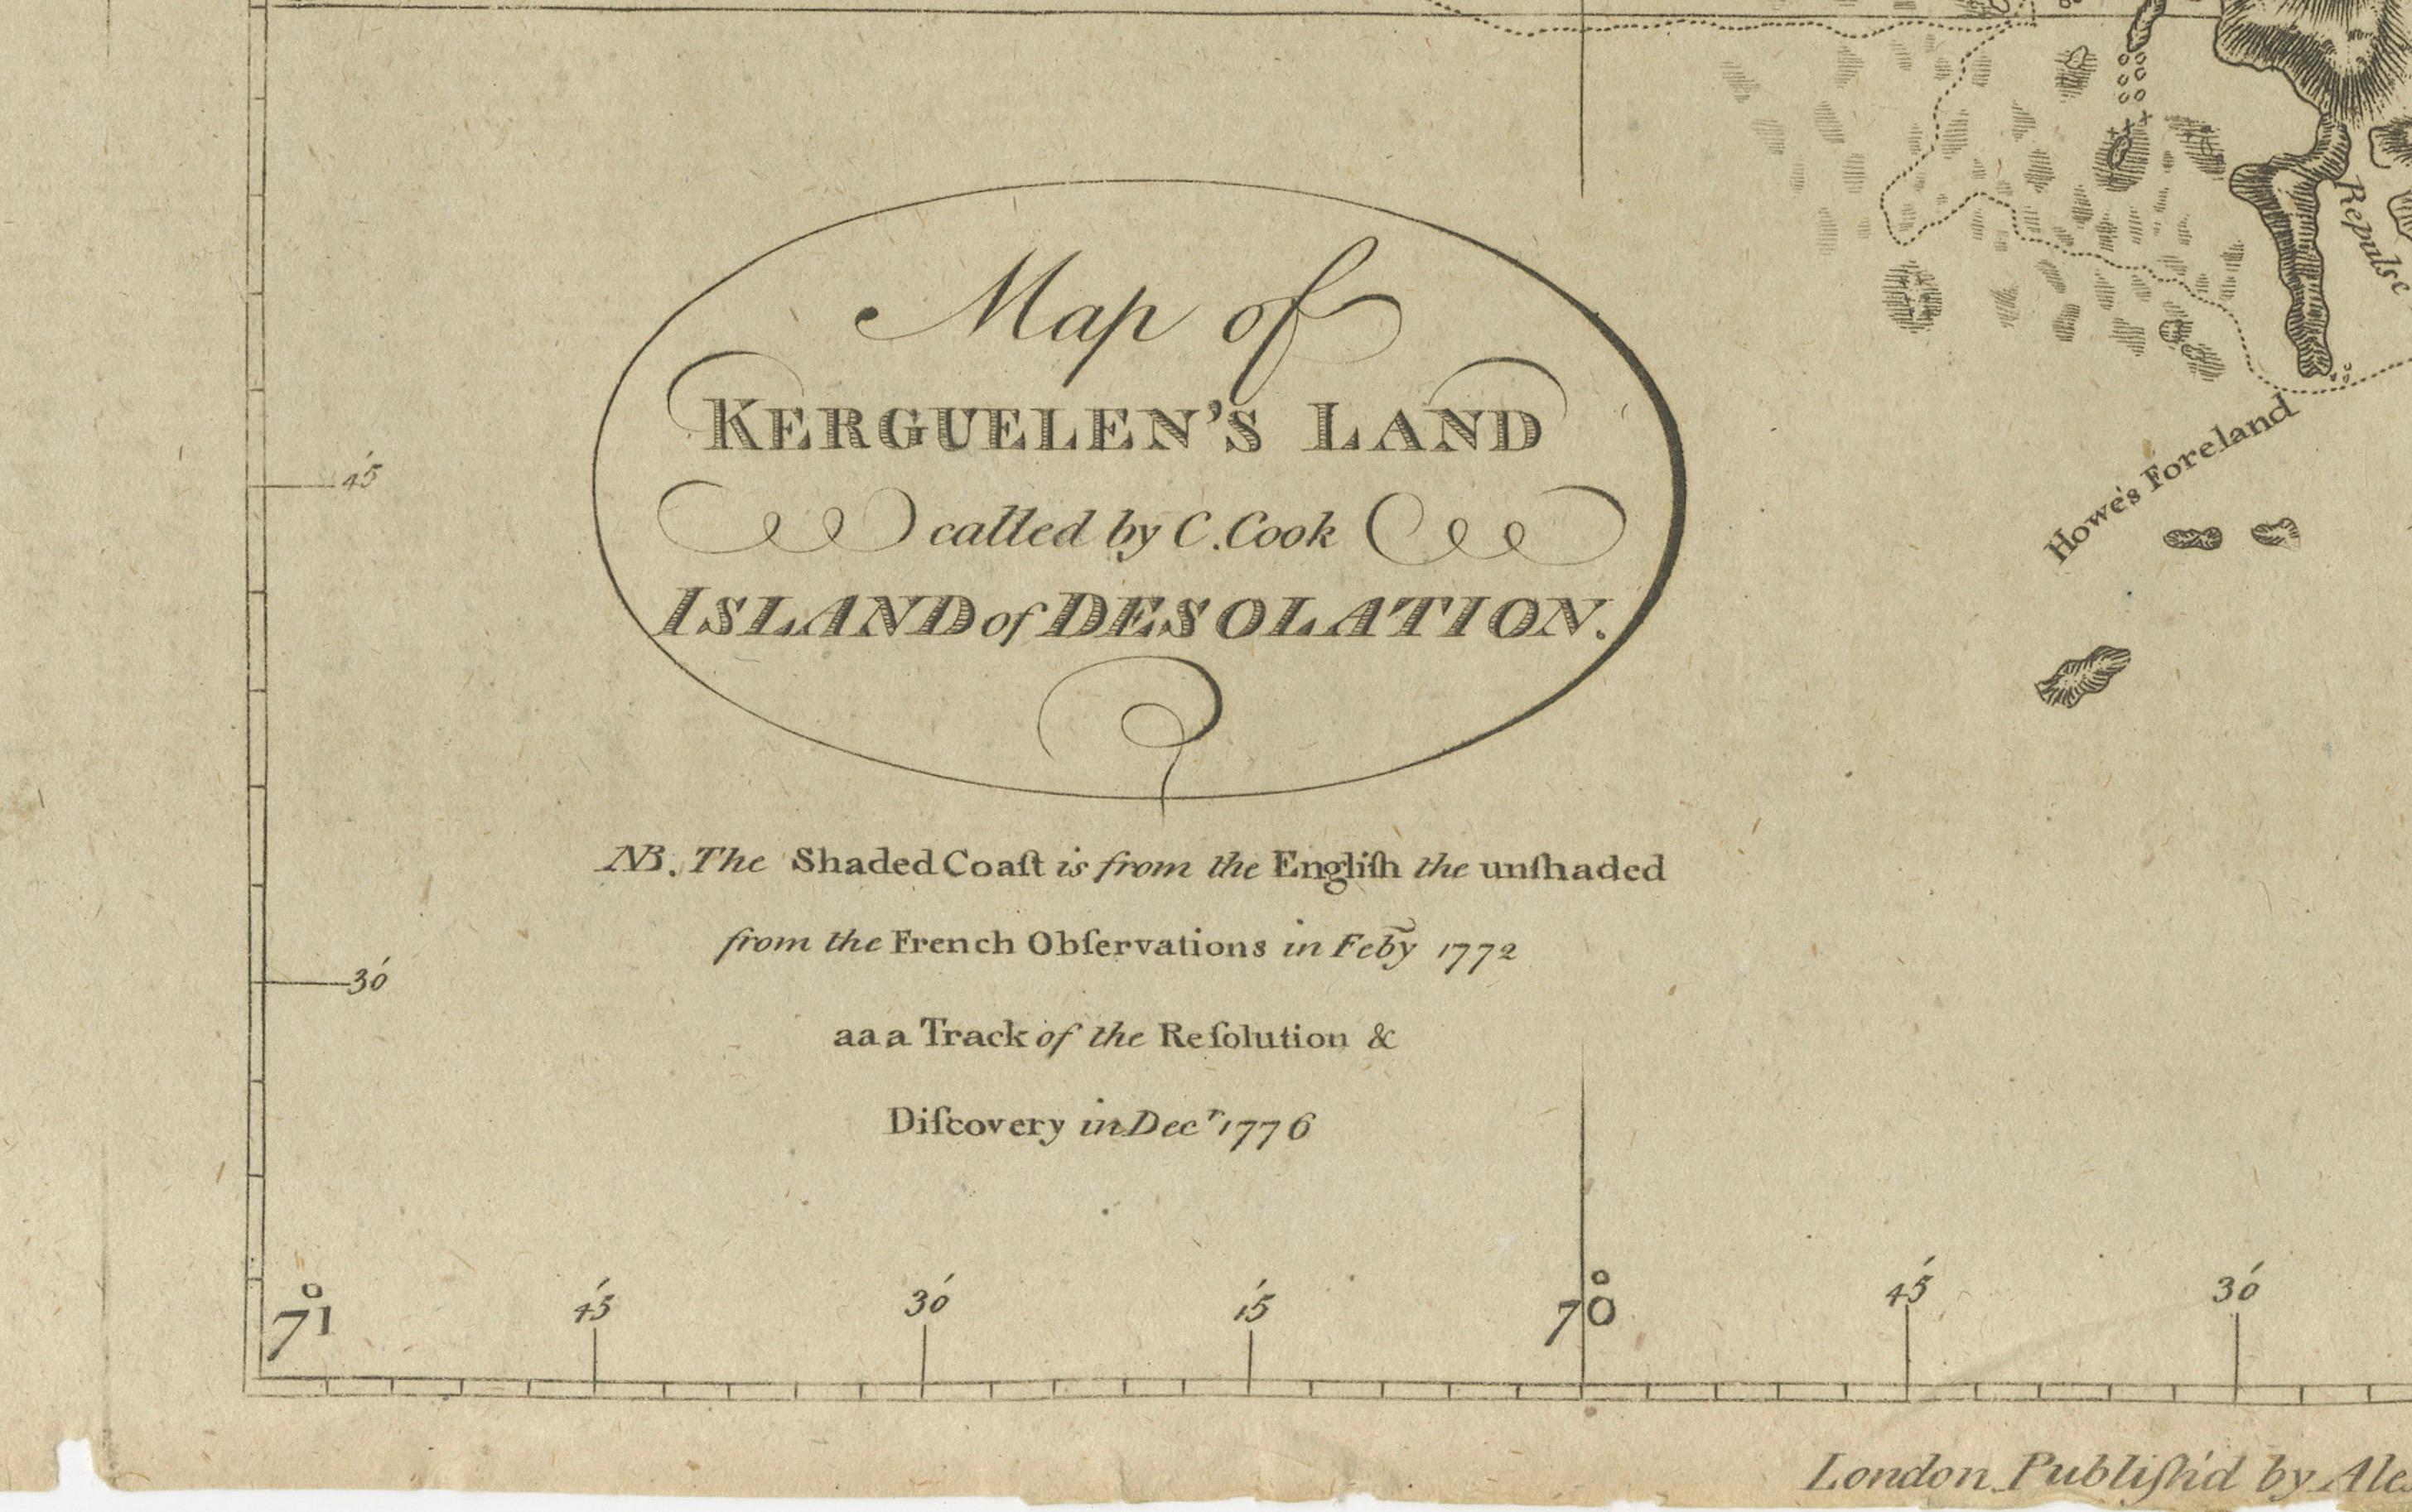 Map of
KERGUELEN'S LAND
called by C. Cook
ISLAND of DESOLATION.
NB. The Shaded Coaſt is from the Engliſh the unſhaded
from the French Obſervations in Feby 1772
aaa Track of the Reſolution &
Diſcovery in Decr 1776
Repulse
Howe's Foreland
45'
30'
71° 45' 30' 15' 70° 45' 30'
London Publiſh'd by Ale